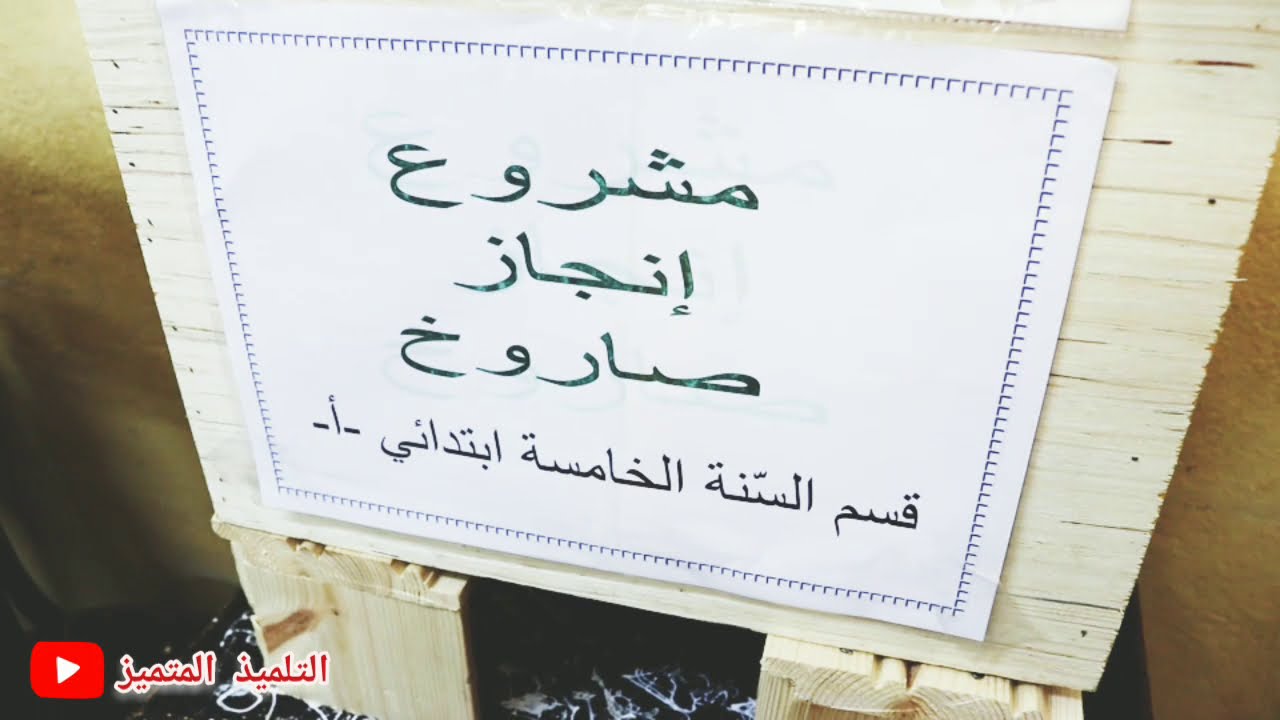 مشروع
إنجاز
صاروخ
قسم السّنة الخامسة ابتدائي -أ-
التلميذ المتميز